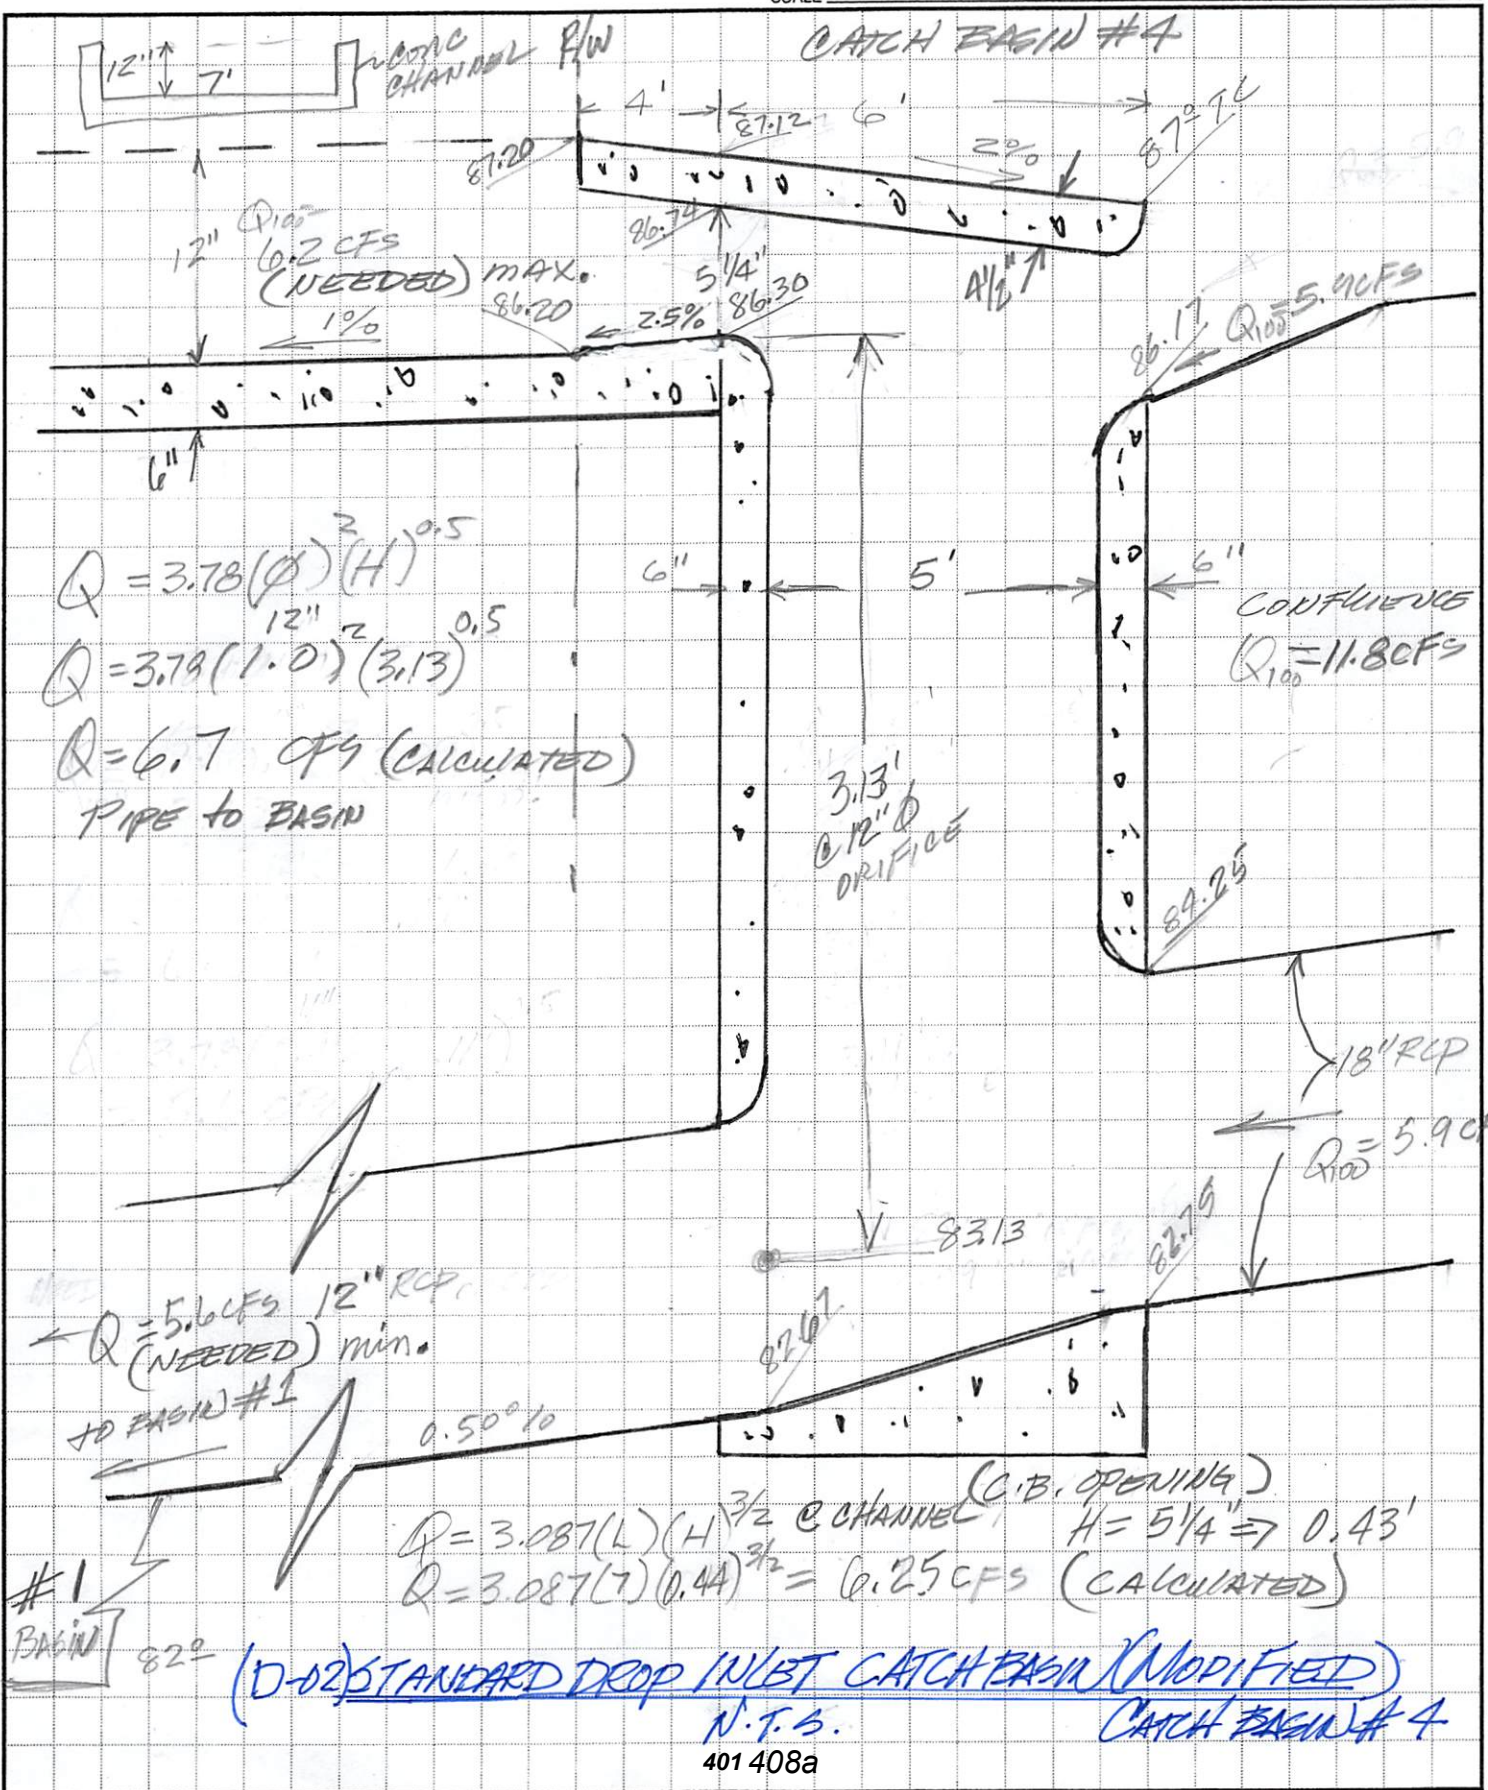 CATCH BASIN #4
12" 7'
CONC
CHANNEL
R/W
4' 6'
87.20
87.12
2%
87º TC
86.74
5 1/4"
4 1/2"
12"
Q100=
6.2 CFS
(NEEDED) MAX.
86.20
86.30
1%
2.5%
6"
86.17
Q100=5.9CFS
Q = 3.78(Ø)²(H)^0.5
12"
Q = 3.78(1.0)²(3.13)^0.5
Q = 6.7 CFS (CALCULATED)
PIPE to BASIN
6" 5' 6"
CONFLUENCE
Q100=11.8CFS
3.13'
@ 12" Ø
ORIFICE
84.25
18" RCP
Q100=5.9
83.13
82.75
82.67
Q = 5.6 CFS 12" RCP
(NEEDED) min.
TO BASIN #1
0.50%
(C.B. OPENING)
Q = 3.087(L)(H)^3/2 @ CHANNEL H = 5 1/4" => 0.43'
Q = 3.087(7)(0.44)^3/2 = 6.25 CFS (CALCULATED)
#1
BASIN
82º
(D-02) STANDARD DROP INLET CATCH BASIN (MODIFIED)
N.T.S. CATCH BASIN #4
401 408a